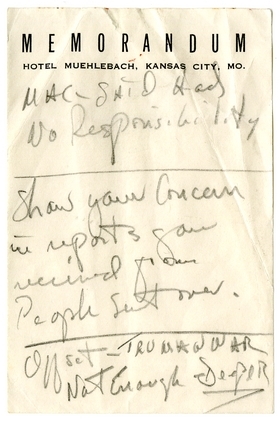 MEMORANDUM
HOTEL MUEHLEBACH, KANSAS CITY, MO.
MAC - SAID Had
No Responsibility
Show your Concern
in reports you
received from
People Sent over.
Offset - TRUMAN WAR
Not Enough - Deeper